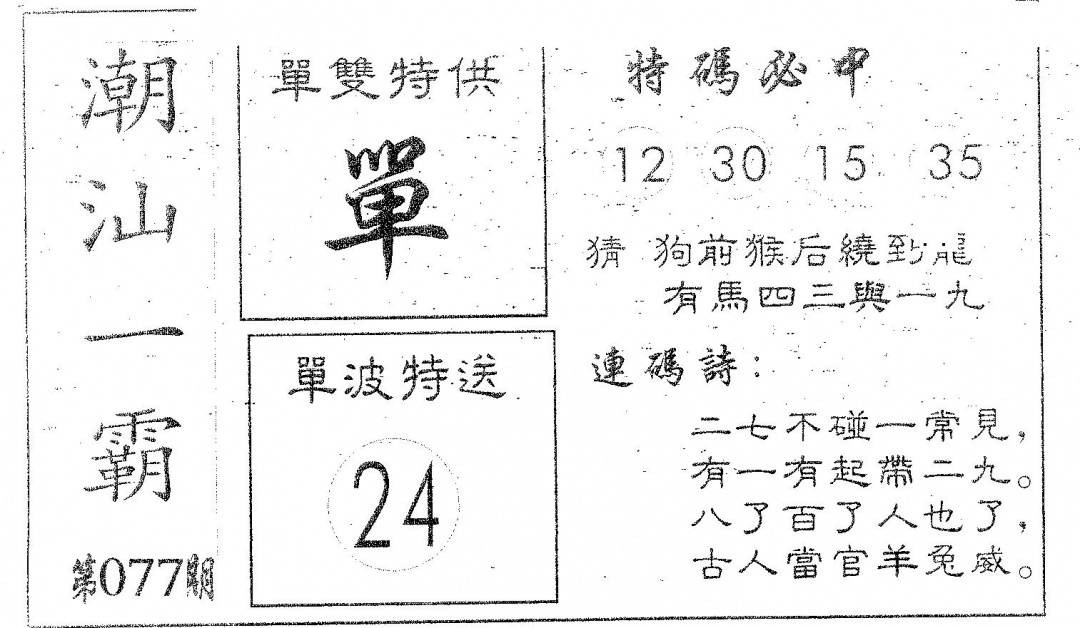 潮汕一霸
第077期
單雙特供
單
單波特送
24
特碼必中
12 30 15 35
猜 狗前猴后繞到龍
有馬四三與一九
連碼詩：
二七不碰一常見，
有一有起帶二九。
八了百了人也了，
古人當官羊兔威。